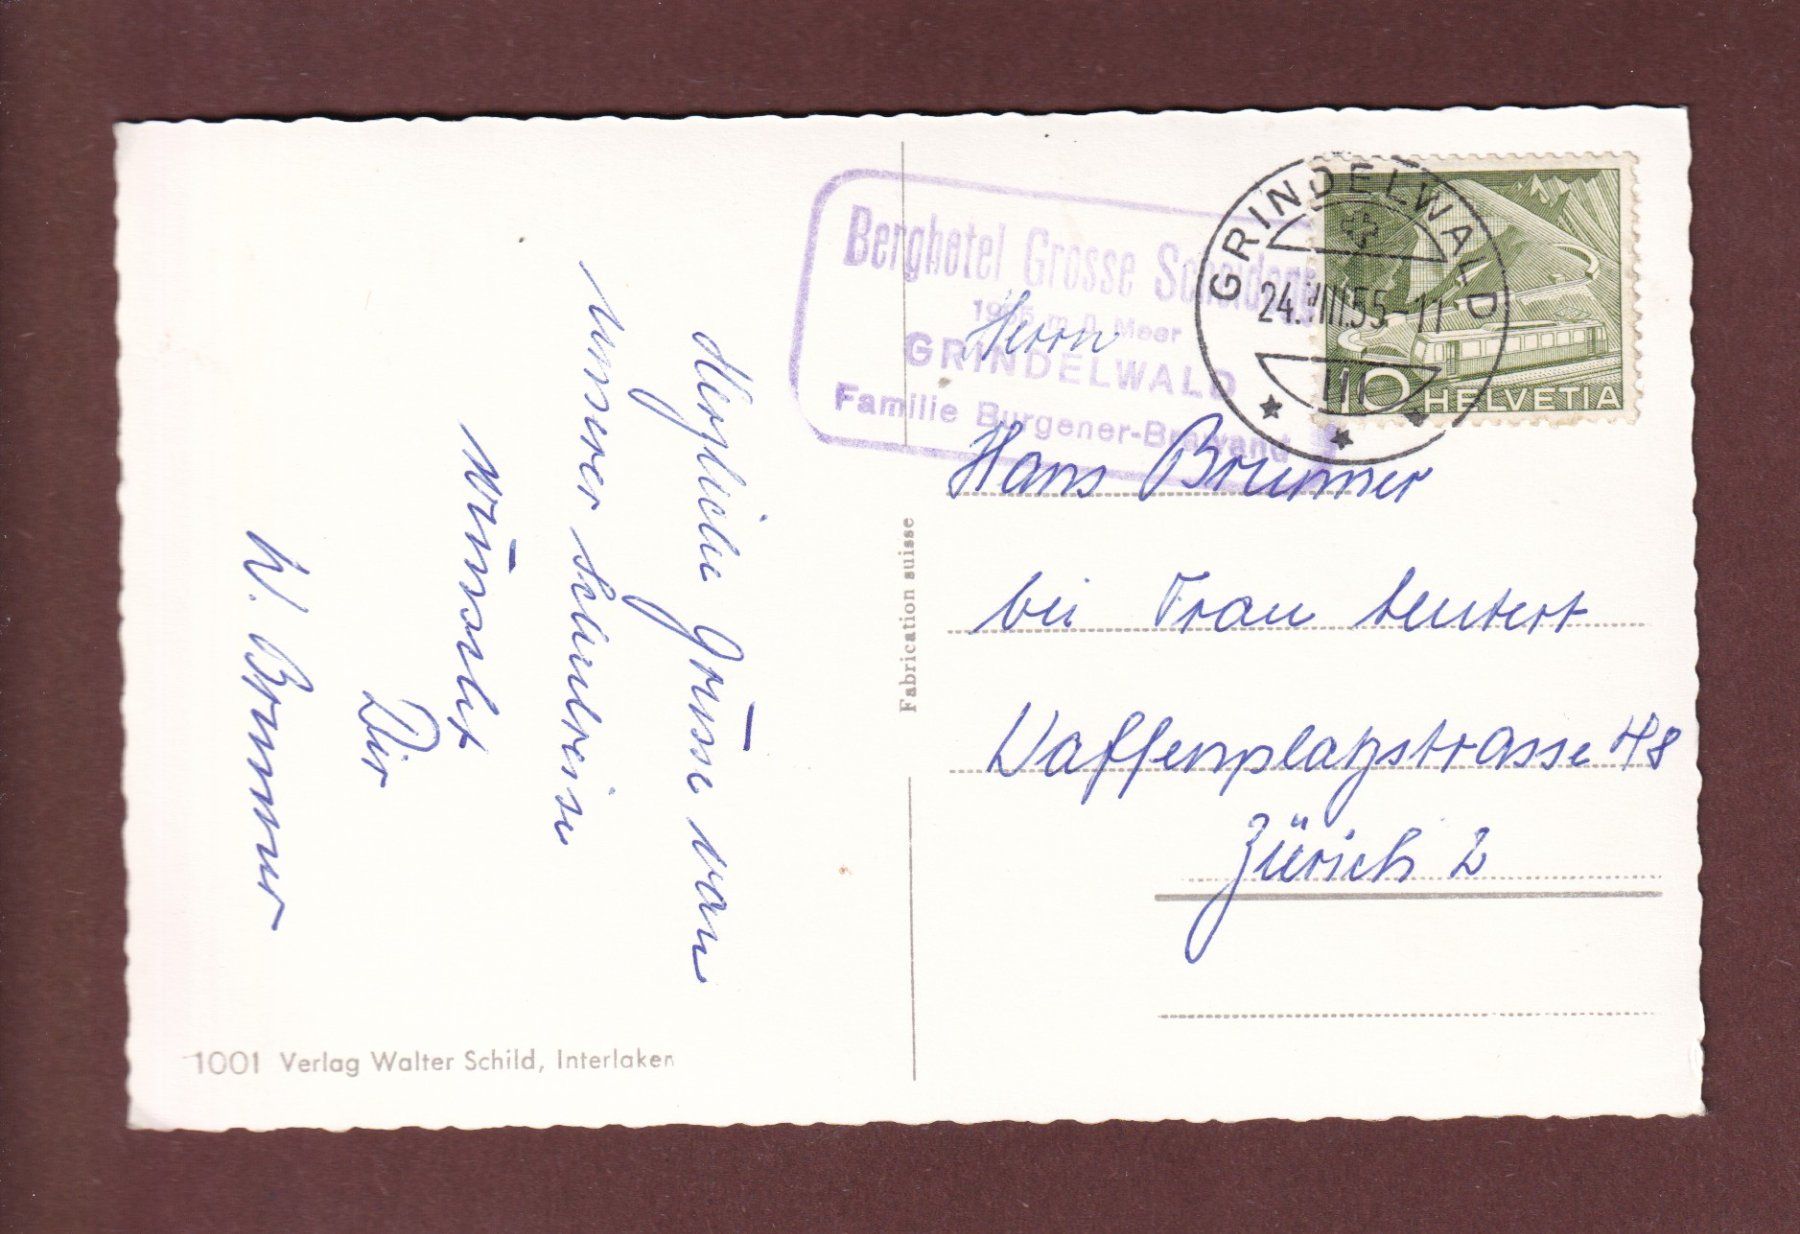 Herzliche Grüsse von
unserer Schulreise
wünscht
Dir
W. Brunner
1001 Verlag Walter Schild, Interlaken
Fabrication suisse
Berghotel Grosse Scheidegg
m ü. Meer
GRINDELWALD
Familie Burgener-Brawand
GRINDELWALD
24.VIII.55-11
10 HELVETIA
Herrn
Hans Brunner
bei Frau
Waffenplatzstrasse
Zürich 2